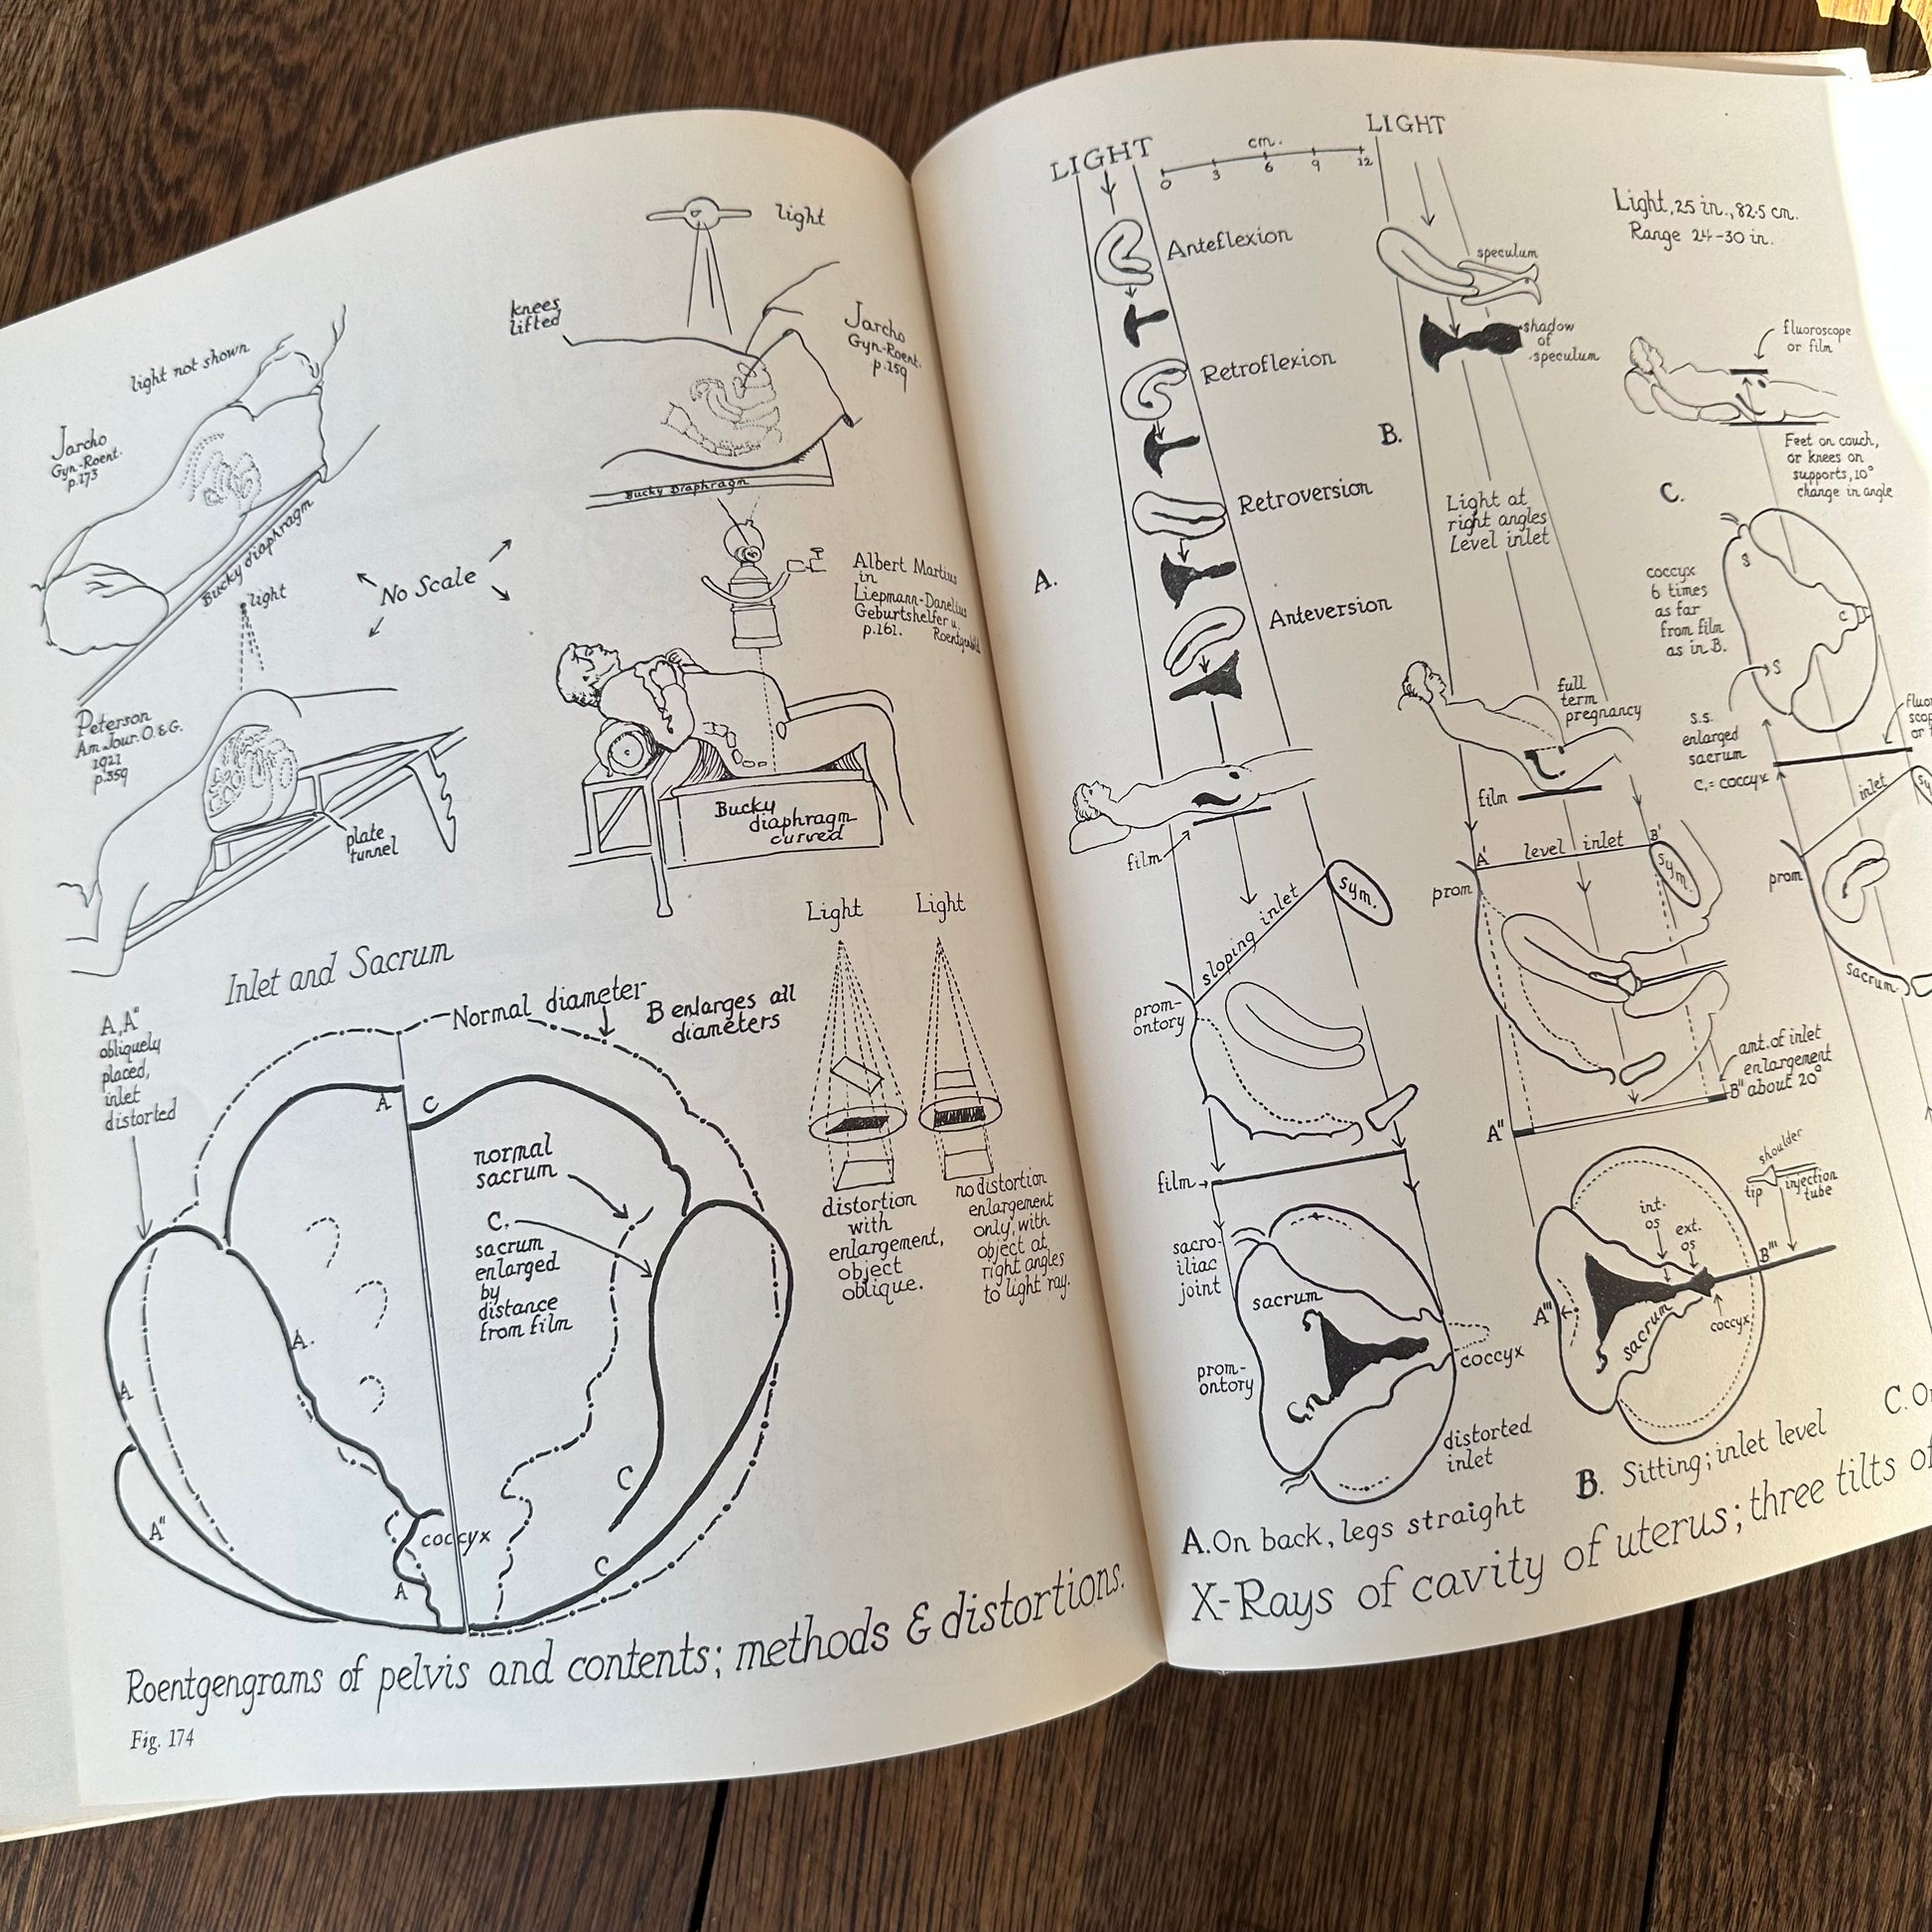 light
knees
lifted
Jarcho
Gyn.-Roent.
p.159
light not shown
Jarcho
Gyn.-Roent.
p.173
Bucky diaphragm
Bucky Diaphragm
No Scale
light
Albert Martius
in
Liepmann-Danelius
Geburtshelfer u.
p.161.
Peterson
Am Jour. O. & G.
1921
p.359
plate
tunnel
Bucky
diaphragm
curved
Inlet and Sacrum
A, A"
obliquely
placed,
inlet
distorted
Normal diameter
B enlarges all
diameters
Light
Light
A
C
normal
sacrum
C.
sacrum
enlarged
by
distance
from film
distortion
with
enlargement,
object
oblique.
no distortion
enlargement
only, with
object at
right angles
to light ray.
A.
A
C
A"
coccyx
A
C
Roentgengrams of pelvis and contents; methods & distortions.
Fig. 174
LIGHT
cm.
0 3 6 9 12
LIGHT
Light, 25 in., 82.5 cm.
Range 24-30 in.
Anteflexion
speculum
shadow
of
speculum
fluoroscope
or film
Retroflexion
B.
Feet on couch,
or knees on
supports, 10°
change in angle
Retroversion
Light at
right angles
Level inlet
C.
A.
Anteversion
S
coccyx
6 times
as far
from film
as in B.
C
S
full
term
pregnancy
S.S.
enlarged
sacrum
C,= coccyx
film
film
A'
level inlet
B'
sym.
prom
inlet
prom
sloping inlet
sym.
sacrum
prom-
ontory
amt. of inlet
enlargement
about 20°
B"
A"
film
shoulder
tip
injection
tube
int.
os
ext.
os
B"'
sacro-
iliac
joint
sacrum
A"'
sacrum
coccyx
prom-
ontory
coccyx
distorted
inlet
A. On back, legs straight
B. Sitting; inlet level
C. O
X-Rays of cavity of uterus; three tilts of